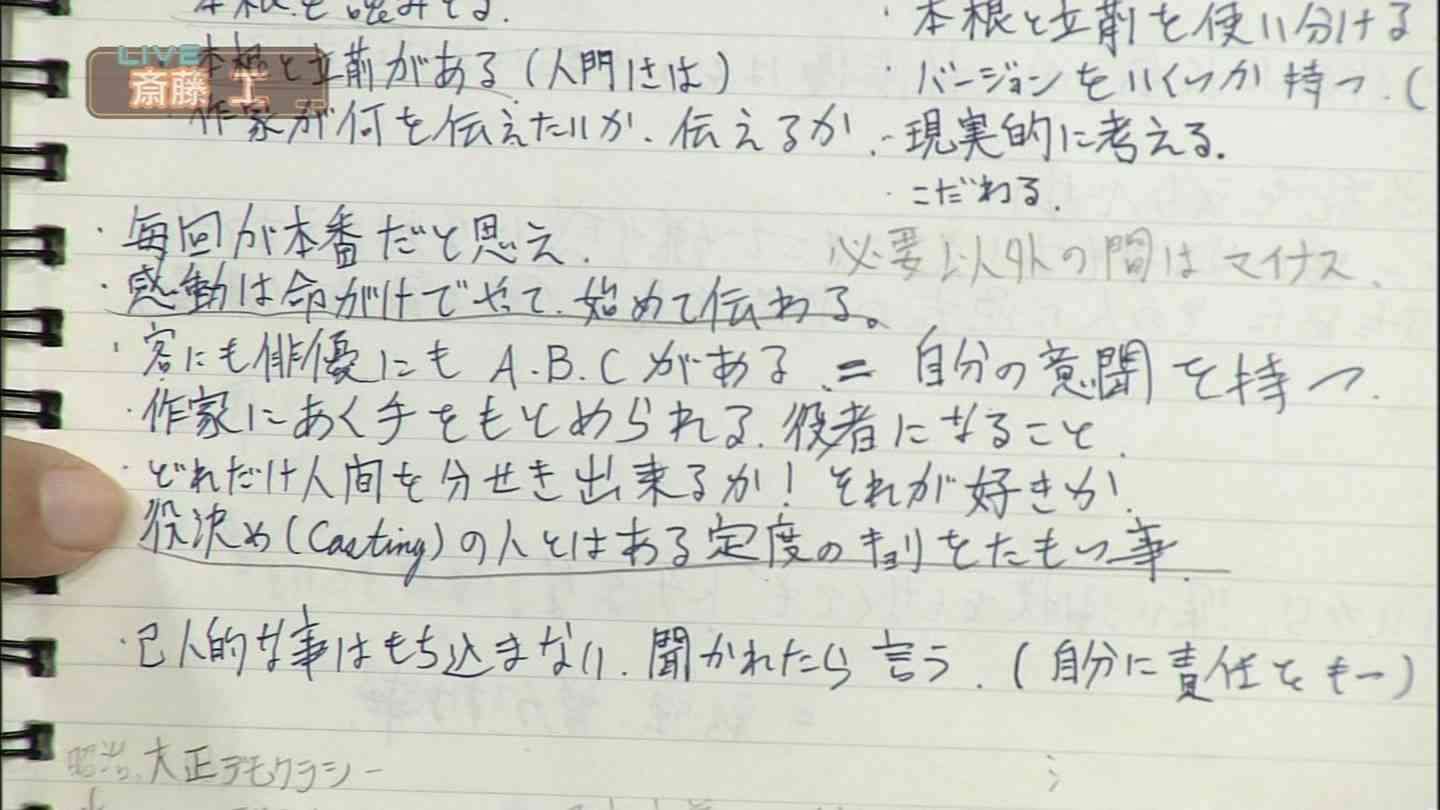 LIVE
斎藤 工
本根と立前がある(人間には)
作家が何を伝えたいか、伝えるか。
本根と立前を使い分ける
バージョンをいくつか持つ.(
現実的に考える.
こだわる.
・毎回が本番だと思え.
必要以外の間はマイナス.
・感動は命がけでやて、始めて伝わる。
・客にも俳優にも A.B.C がある. = 自分の意聞を持つ.
・作家にあく手をもとめられる.役者になること.
・どれだけ人間を分せき出来るか! それが好きか!
役決め(Casting)の人とはある定度のキョリをたもつ事.
・己人的な事はもち込まない.聞かれたら言う.(自分に責任をもつ)
昭治、大正デモクラシー